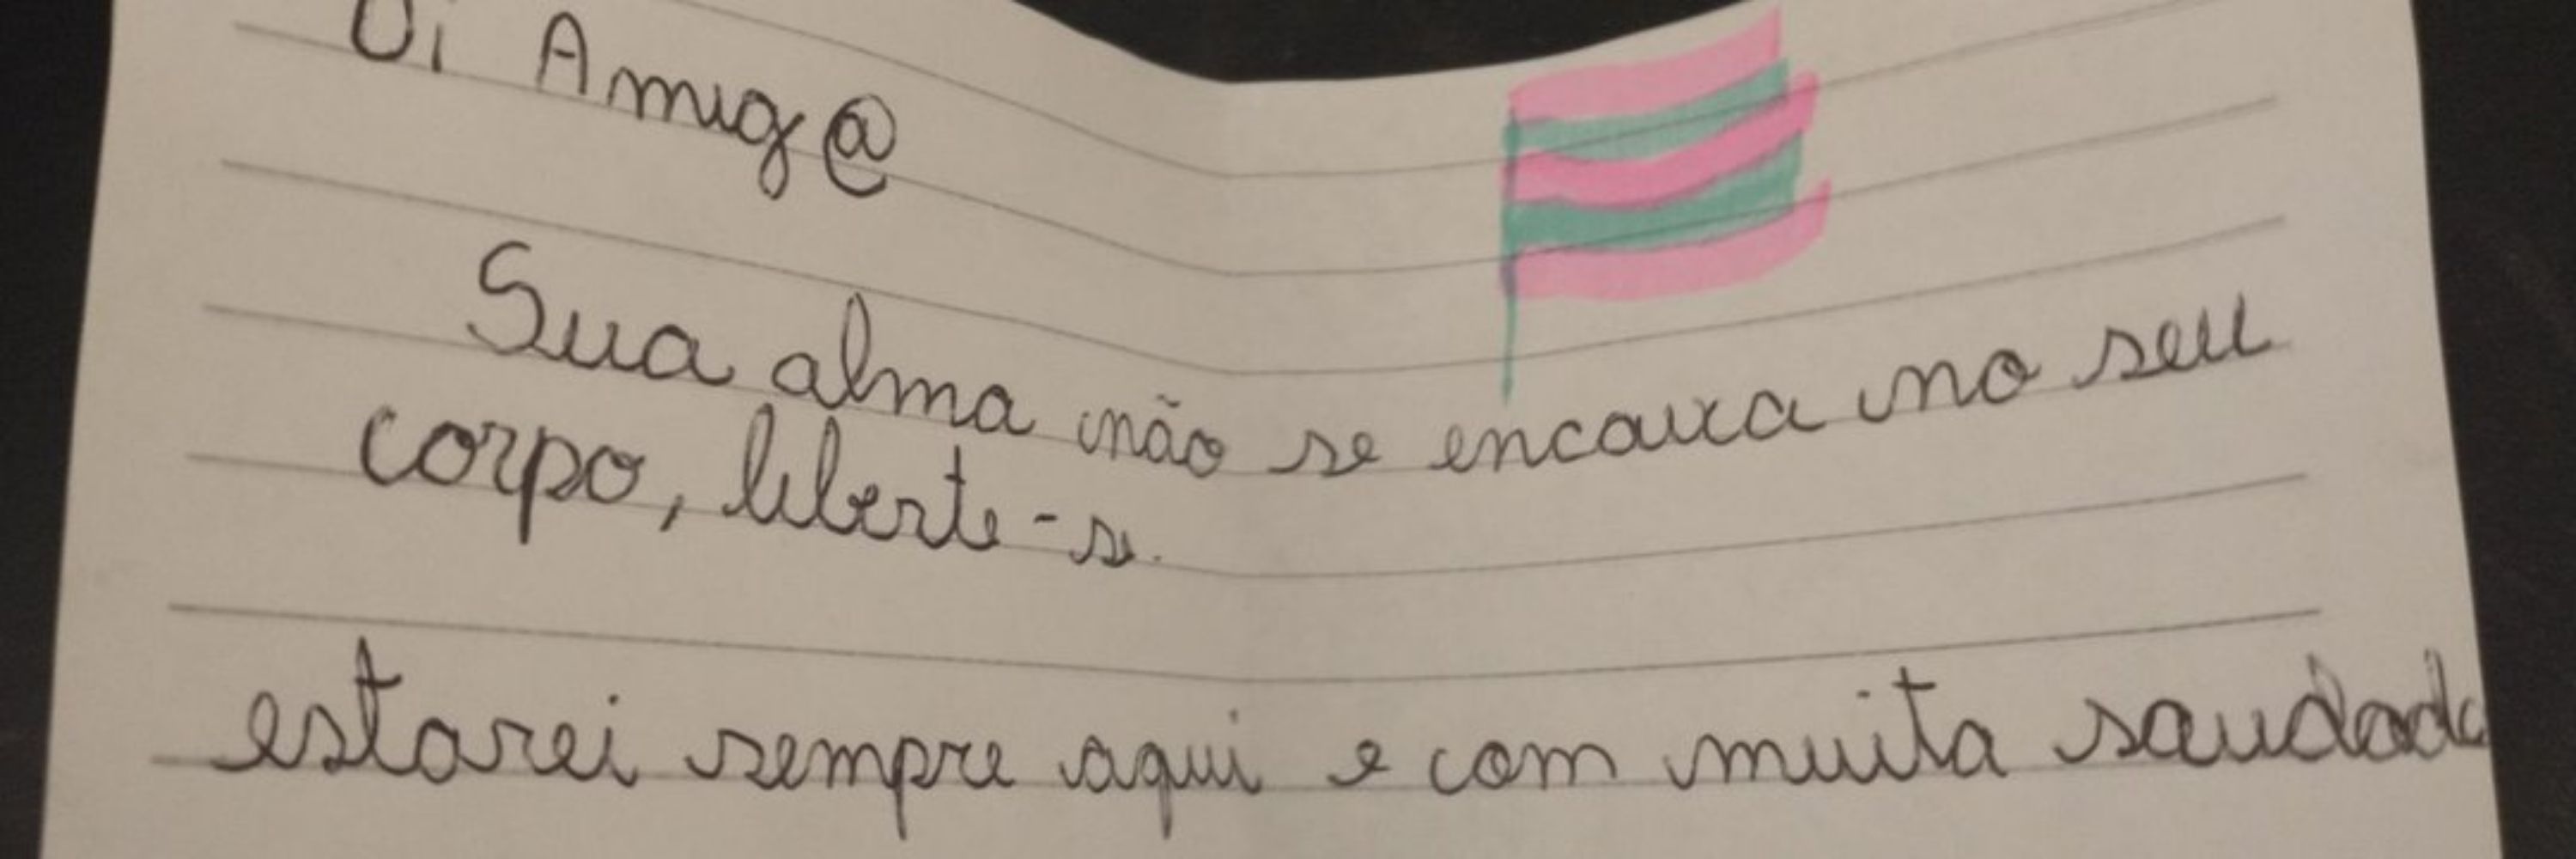 Oi Amig@
Sua alma não se encaixa no seu
corpo, liberte-se.
estarei sempre aqui e com muita saudade